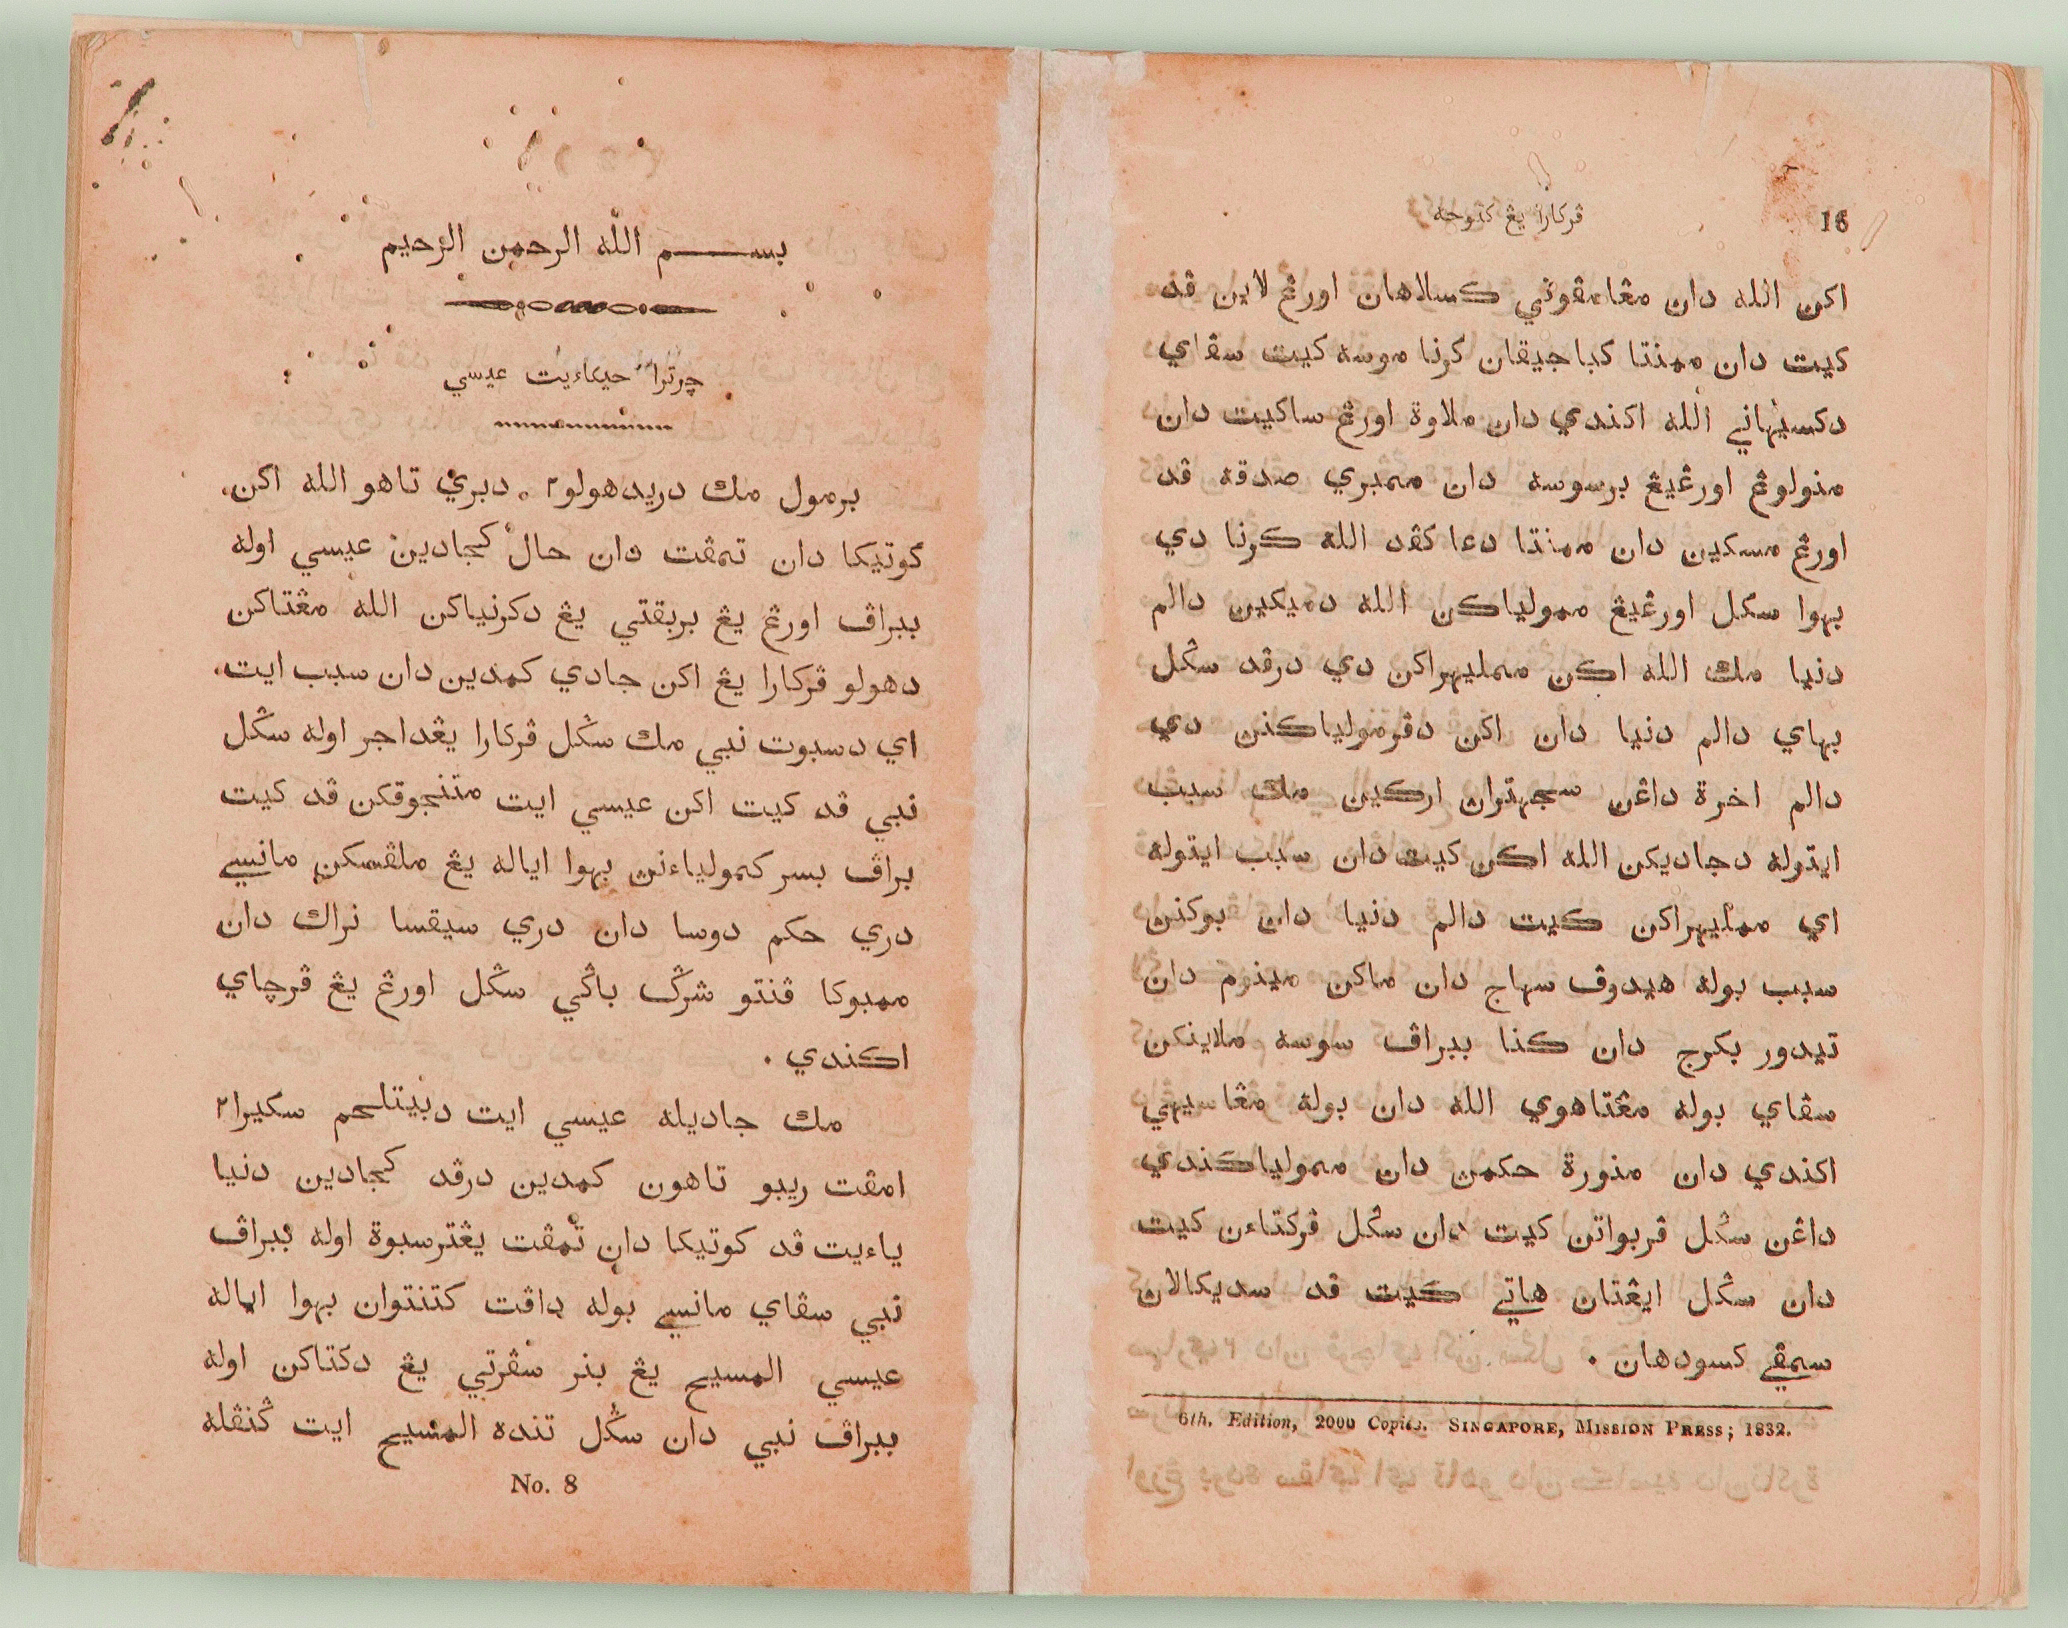 16
ڤركارا يڠ كتوجه
اكن الله دان مڠامڤوني كسلاهان اورڠ لاين ڤد
كيت دان ممنتا كباجيقان كرنا موسه كيت سڤاي
دكسيهاني الله اكندي دان ملاوة اورڠ ساكيت دان
منولوڠ اورڠيڠ برسوسه دان ممبري صدقه ڤد
اورڠ مسكين دان ممنتا دعا كڤد الله كرنا دي
بهوا سكل اورڠيڠ ممولياكن الله دميكين دالم
دنيا مك الله اكن ممليهراكن دي درڤد سݢل
بهاي دالم دنيا دان اكن دڤرمولياكنن دي
دالم اخرة داڠن سجهتران اركين مك سبب
ايتوله دجاديكن الله اكن كيت دان سبب ايتوله
اي ممليهراكن كيت دالم دنيا دان بوكنن
سبب بوله هيدوڤ سهاج دان ماكن مينوم دان
تيدور بكرج دان كنا ببراڤ سوسه ملاينكن
سڤاي بوله مڠتاهوي الله دان بوله مڠاسيهي
اكندي دان منورة حكمن دان ممولياكندي
داڠن سݢل ڤربواتن كيت دان سݢل ڤركتاءن كيت
دان سݢل ايڠتان هاتي كيت ڤد سديكالان
سمڤي كسودهان .
6th. Edition, 2000 Copies. SINGAPORE, MISSION PRESS; 1832.
بســـم الله الرحمن الرحيم
چرترا حيكاءيت عيسي
برمول مك دريدهولو٢ . دبري تاهو الله اكن
كوتيكا دان تمڤت دان حال كجادين عيسي اوله
ببراڤ اورڠ يڠ بربقتي يڠ دكرنياكن الله مڠتاكن
دهولو ڤركارا يڠ اكن جادي كمدين دان سبب ايت
اي دسبوت نبي مك سݢل ڤركارا يڠداجر اوله سݢل
نبي ڤد كيت اكن عيسي ايت متنجوقكن ڤد كيت
براڤ بسر كمولياءنن بهوا اياله يڠ ملڤسكن مانسي
دري حكم دوسا دان دري سيقسا نراك دان
ممبوكا ڤنتو شرݢ باݢي سݢل اورڠ يڠ ڤرچاي
اكندي .
مك جاديله عيسي ايت دبيتلحم سكيرا٢
امڤت ريبو تاهون كمدين درڤد كجادين دنيا
ياءيت ڤد كوتيكا دان تمڤت يڠترسبوة اوله ببراڤ
نبي سڤاي مانسي بوله داڤت كتنتوان بهوا اياله
عيسي المسيح يڠ بنر سڤرتي يڠ دكتاكن اوله
ببراڤ نبي دان سݢل تنده المسيح ايت ݢنڤله
No. 8